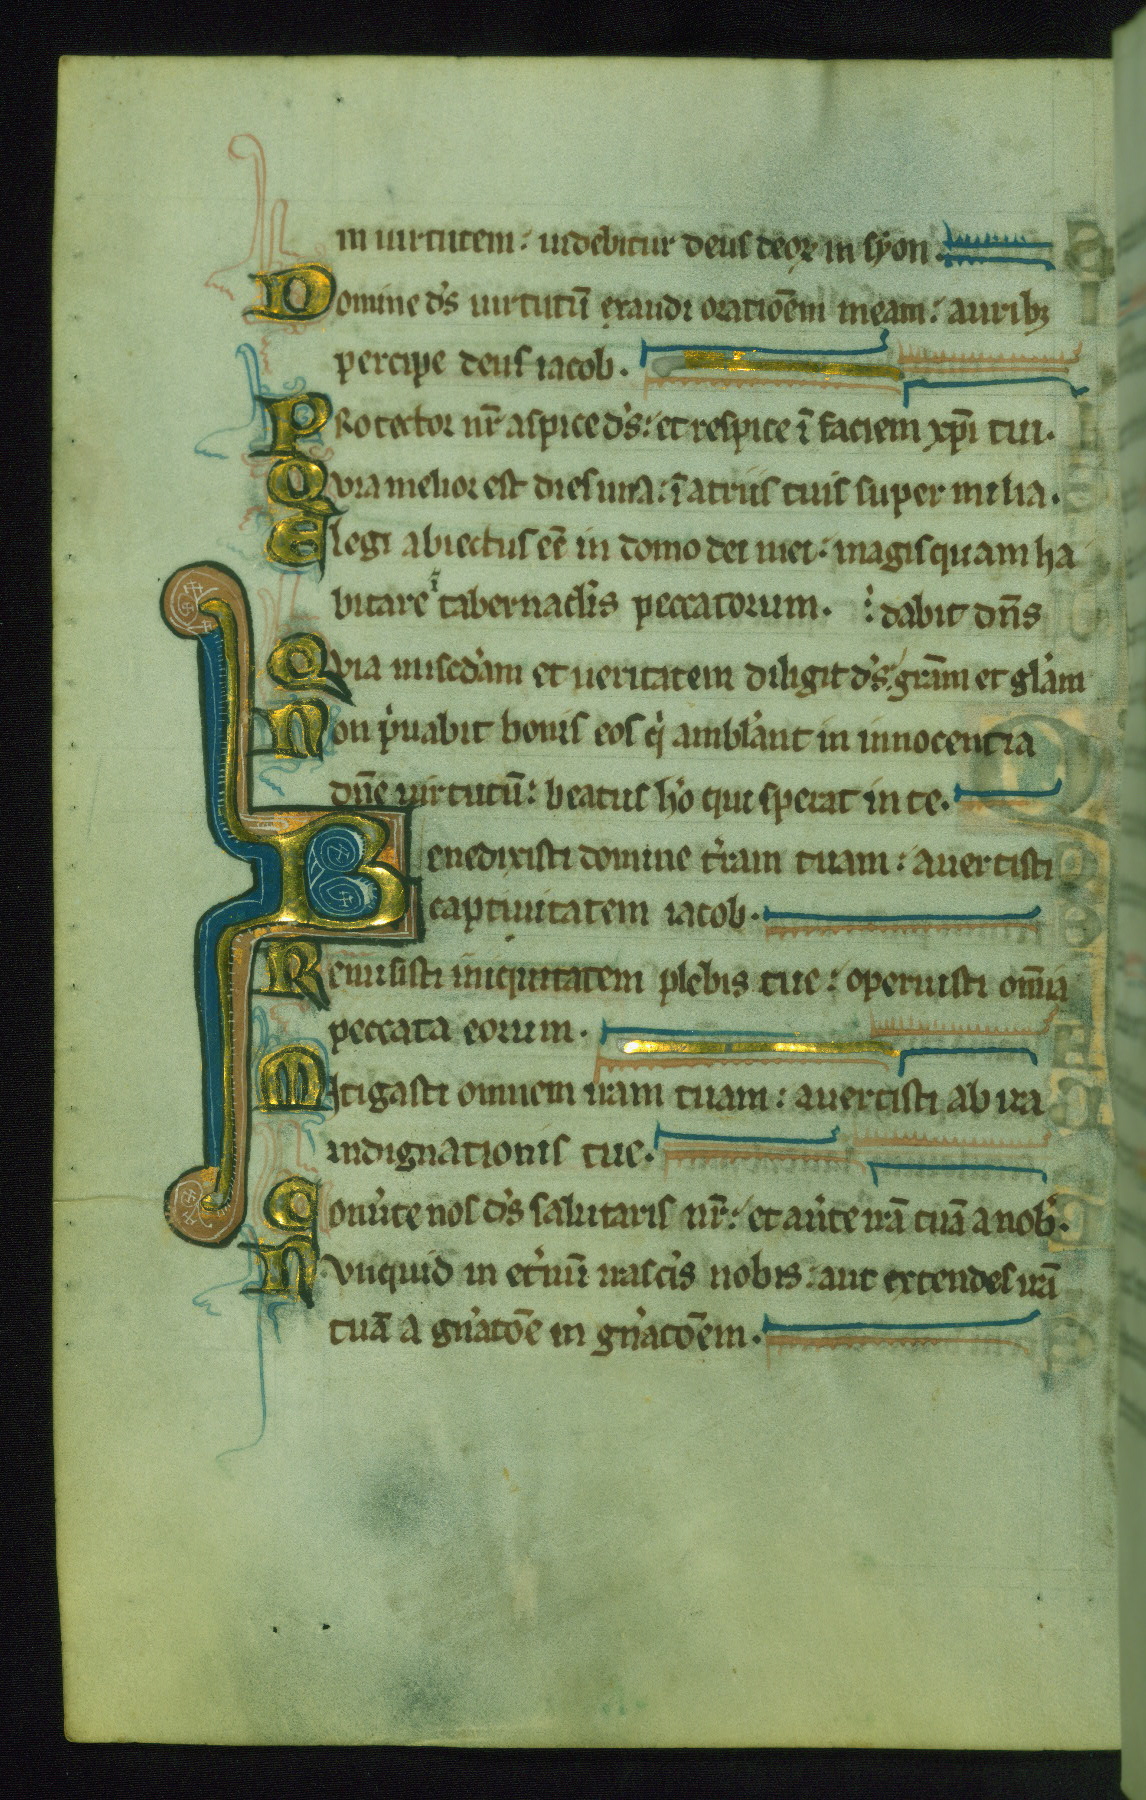 in uirtutem: uidebitur deus deoꝝ in syon.
Domine d's uirtutū exaudi oratiōem meam: auribꝫ
percipe deus iacob.
Protector nr̄ aspice d's: et respice ī faciem xp̄i tui.
Quia melior est dies una: ī atriis tuis super milia.
Elegi abiectus eē in domo dei mei: magis quam ha
bitare ī tabernacl'is peccatorum. : dabit dn̄s
Quia mised'am et ueritatem diligit d's: grām et gl'am
Non p'uabit bonis eos q' ambl'ant in innocentia
dn̄e uirtutū: beatus h'o qui sperat in te.
Benedixisti domine t'ram tuam: auertisti
captiuitatem iacob.
Remisisti iniquitatem plebis tue: operuisti om̄ia
peccata eorum.
Mitigasti omnem iram tuam: auertisti ab ira
indignationis tue.
Conu'te nos d's salutaris nr̄: et au'te irā tuā a nob'.
Nunquid in et'nū irasc'is nobis: aut extendes irā
tuā a gn'atōe in gn'atōem.